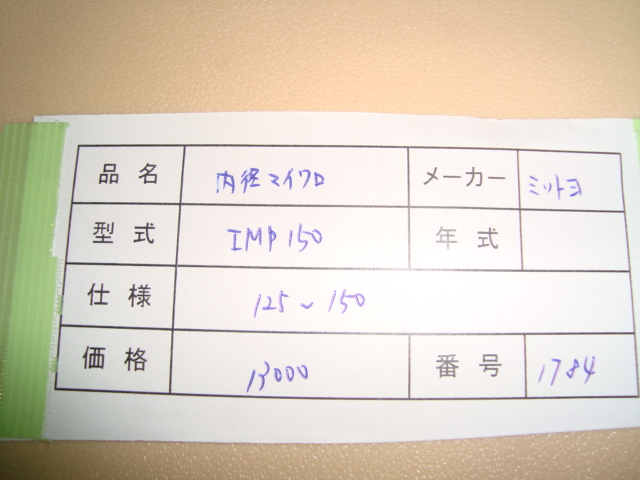 品名 内径マイクロ メーカー ミツトヨ
型式 IMP 150 年式
仕様 125～150
価格 13000 番号 1784